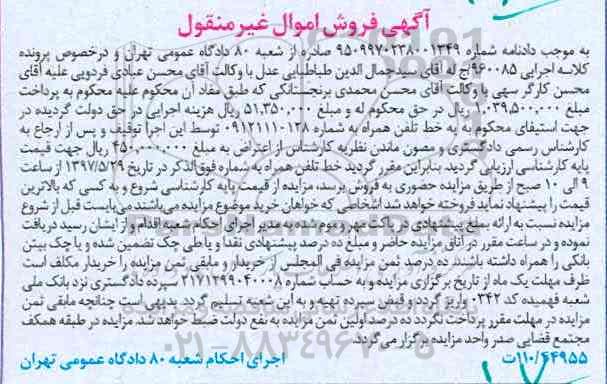 آگهی فروش اموال غیر منقول
به موجب دادنامه شماره ۹۵۰۹۹۷۰۲۳۸۰۰۱۳۴۹ صادره از شعبه ۸۰ دادگاه عمومی تهران و درخصوص پرونده
کلاسه اجرایی ۹۶۰۰۸۵/ج له آقای سیدجمال الدین طباطبایی عدل با وکالت آقای محسن عبادی فردویی علیه آقای
محسن کارگر سهی با وکالت آقای محسن محمدی برنجستانکی که طبق مفاد آن محکوم علیه محکوم به پرداخت
مبلغ ۱,۰۳۹,۵۰۰,۰۰۰ ریال در حق محکوم له و مبلغ ۵۱,۳۵۰,۰۰۰ ریال هزینه اجرایی در حق دولت گردیده در
جهت استیفای محکوم به به خط تلفن همراه به شماره ۰۹۱۲۱۱۱۰۱۲۸ توسط این اجرا توقیف و پس از ارجاع به
کارشناس رسمی دادگستری و مصون ماندن نظریه کارشناس از اعتراض به مبلغ ۴۵۰,۰۰۰,۰۰۰ ریال جهت قیمت
پایه کارشناسی ارزیابی گردید. بنابراین مقرر گردید خط تلفن همراه به شماره فوق‌الذکر در تاریخ ۱۳۹۷/۵/۲۹ از ساعت
۹ الی ۱۰ صبح از طریق مزایده حضوری به فروش برسد، مزایده از قیمت پایه کارشناسی شروع و به کسی که بالاترین
قیمت را پیشنهاد نماید فروخته خواهد شد اشخاصی که خواهان خرید موضوع مزایده می‌باشند می‌بایست قبل از شروع
مزایده نسبت به ارائه مبلغ پیشنهادی در پاکت مهر و موم شده به مدیر اجرای احکام شعبه اقدام و از ایشان رسید دریافت
نموده و در ساعت مقرر در اتاق مزایده حاضر و مبلغ ده درصد پیشنهادی نقدا و یا طی چک تضمین شده و یا چک بین
بانکی را همراه داشته باشند. ده درصد ثمن مزایده فی المجلس از خریدار و مابقی ثمن مزایده را خریدار مکلف است
ظرف مهلت یک ماه از تاریخ برگزاری مزایده و به حساب شماره ۲۱۷۱۲۹۹۰۴۰۰۰۸ سپرده دادگستری نزد بانک ملی
شعبه فهمیده کد ۰۳۴۲ واریز گردد و قبض سپرده تهیه و به این شعبه تسلیم گردد. بدیهی است چنانچه مابقی ثمن
مزایده در مهلت مقرر پرداخت نگردد ده درصد اولین ثمن مزایده به نفع دولت ضبط خواهد شد. مزایده در طبقه همکف
مجتمع قضایی صدر واحد مزایده برگزار می‌گردد.
۰۲۱-۸۸۳۴۹۶۷۰-۵
۱۱۰/۶۴۹۵۵ت اجرای احکام شعبه ۸۰ دادگاه عمومی تهران